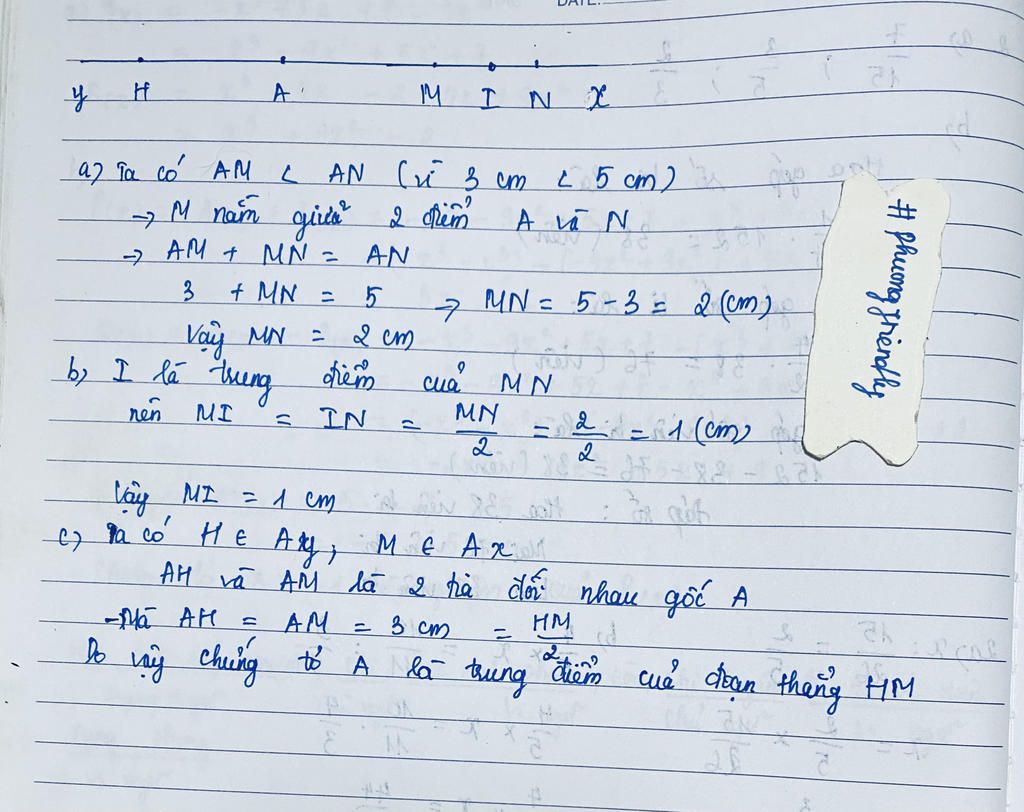 DATE:
y H A M I N x
a) Ta có AM < AN (vì 3 cm < 5 cm)
→ M nằm giữa 2 điểm A và N
→ AM + MN = AN
3 + MN = 5 → MN = 5 - 3 = 2 (cm)
Vậy MN = 2 cm
b) I là trung điểm của MN
nên MI = IN = MN/2 = 2/2 = 1 (cm)
Vậy MI = 1 cm
c) Ta có H ∈ Ay, M ∈ Ax
AH và AM là 2 tia đối nhau gốc A
- Mà AH = AM = 3 cm = HM/2
Do vậy chứng tỏ A là trung điểm của đoạn thẳng HM
#phuongfriendly